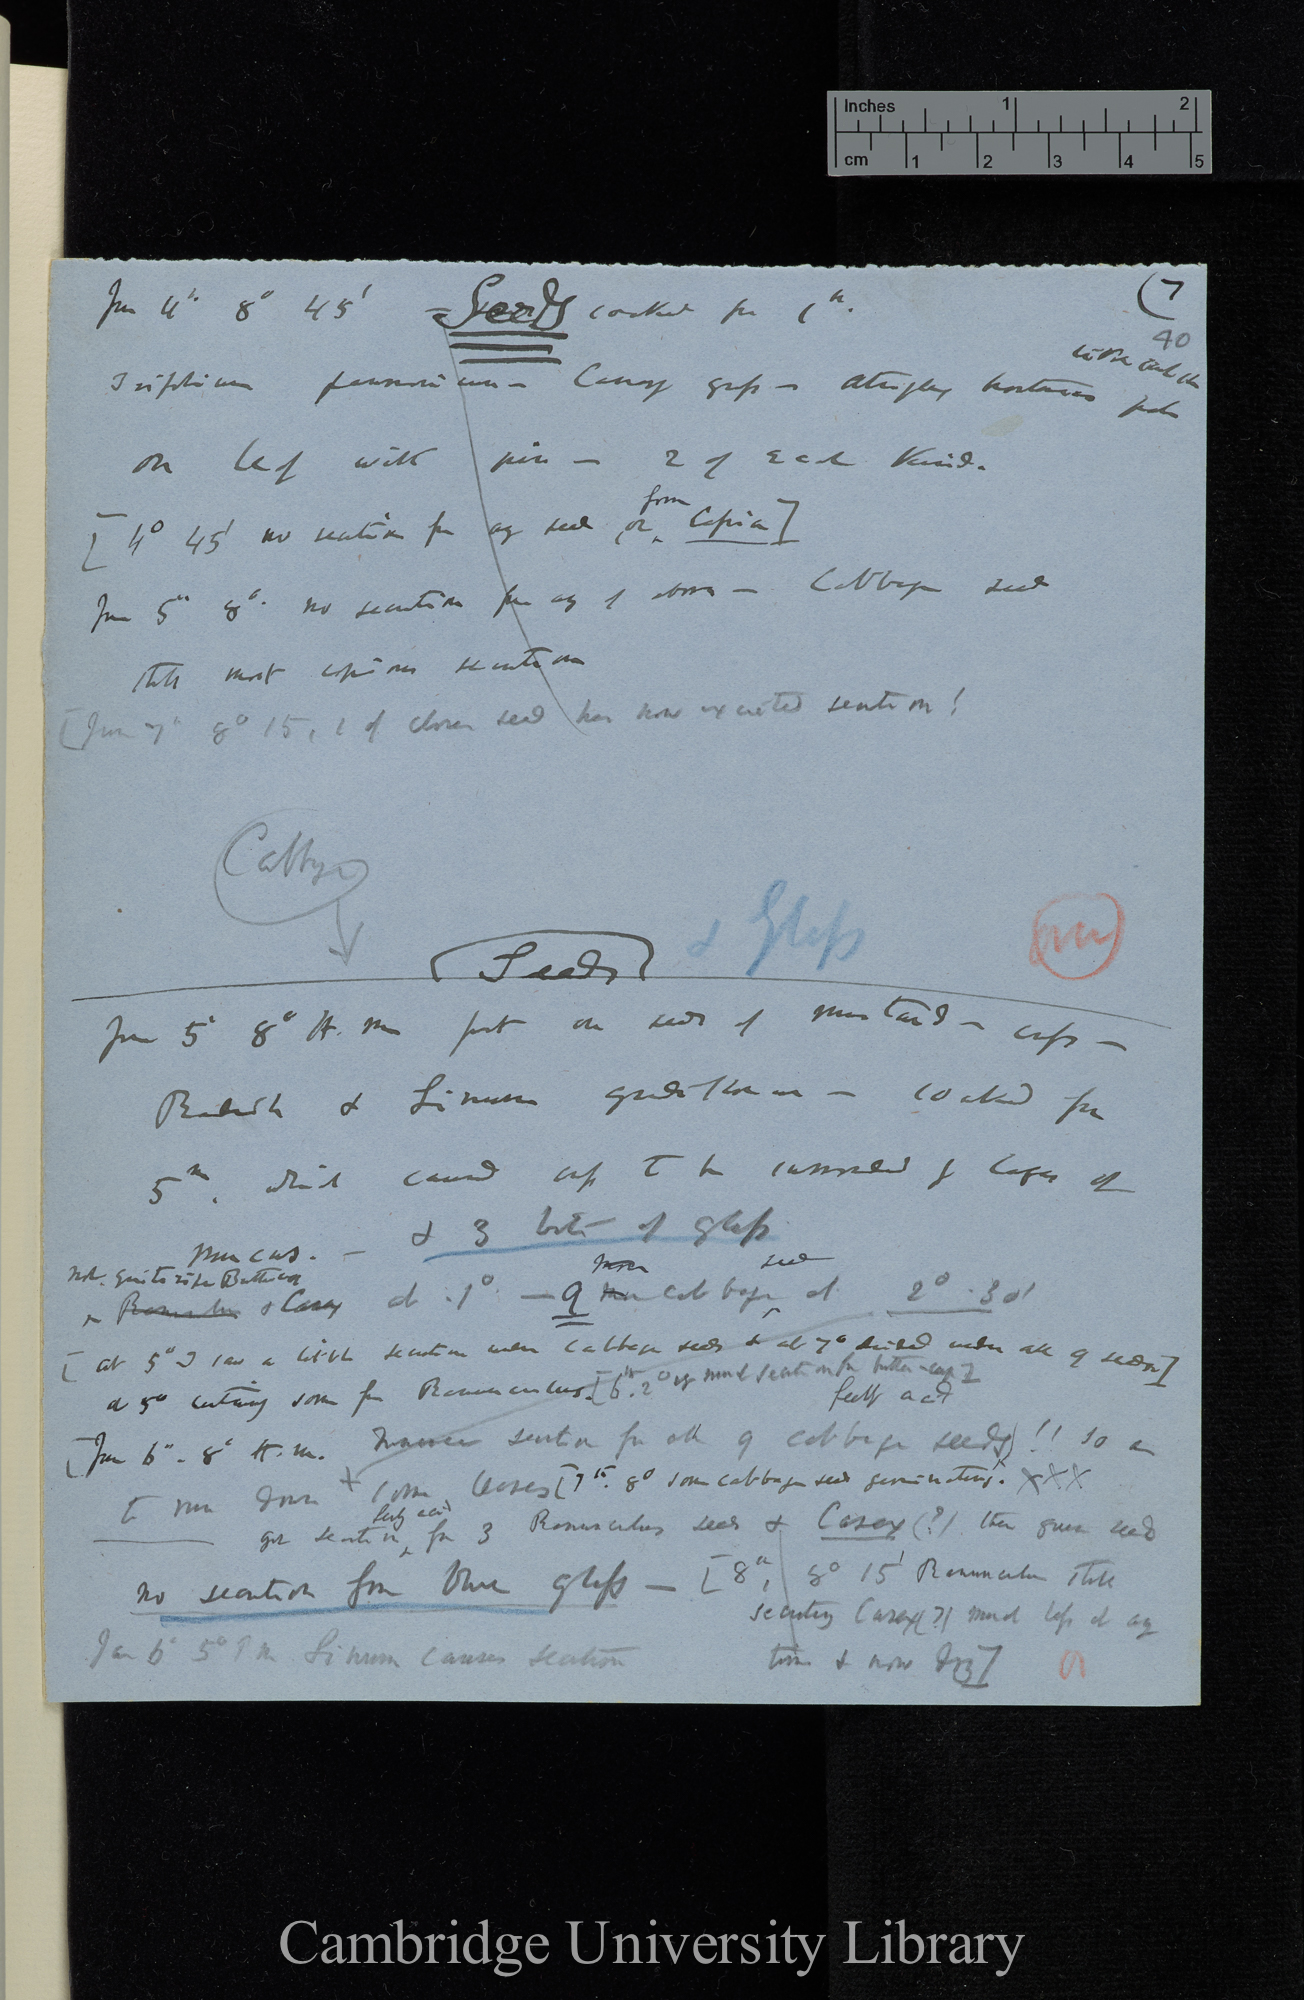 Inches 1 2
cm 1 2 3 4 5
(7
40
June 4th 8° 45' - Seeds soaked for 1h.
Trifolium pannonicum — Canary grass — Atriplex hortensis put
on leaf with pin — 2 of each kind.
[4° 45' no secretion from any seed or from
June 5th 8°. no secretion from any of above — Cabbage seed
still most copious secretion
[June 7th 8° 15, 1 of clover seed has now excited secretion!
Cabbage
Seeds
& Glass
June 5th 8° A.m put on seeds of mustard — cress —
Radish & Linum grandiflorum — soaked for
5m, which caused cress to be surrounded by layer of
mucus. — & 3 bits of glass
not quite ripe Buttercup
Ranunculus & Carex at 1° — 9 more cabbage seed at 2° 30'
[at 5° I saw a little secretion under cabbage seeds & at 7° decided under all 9 seeds]
at 5° certainly some from Ranunculus. [6th. 2° of much secretion from butter-cup]
feebly acid
[June 6th. 8° A.m. secretion from all 9 cabbage seeds)!! so as
to run down some leaves [7th. 8° some cabbage seed germinating. XXX
feebly acid
good secretion from 3 Ranunculus seeds & Carex (?) then green seed
no secretion from blue glass — [8th, 8° 15' Ranunculus still
secreting Carex (?) much less at any
time & now dry]
June 6th 5° P m Linum causes secretion
Cambridge University Library